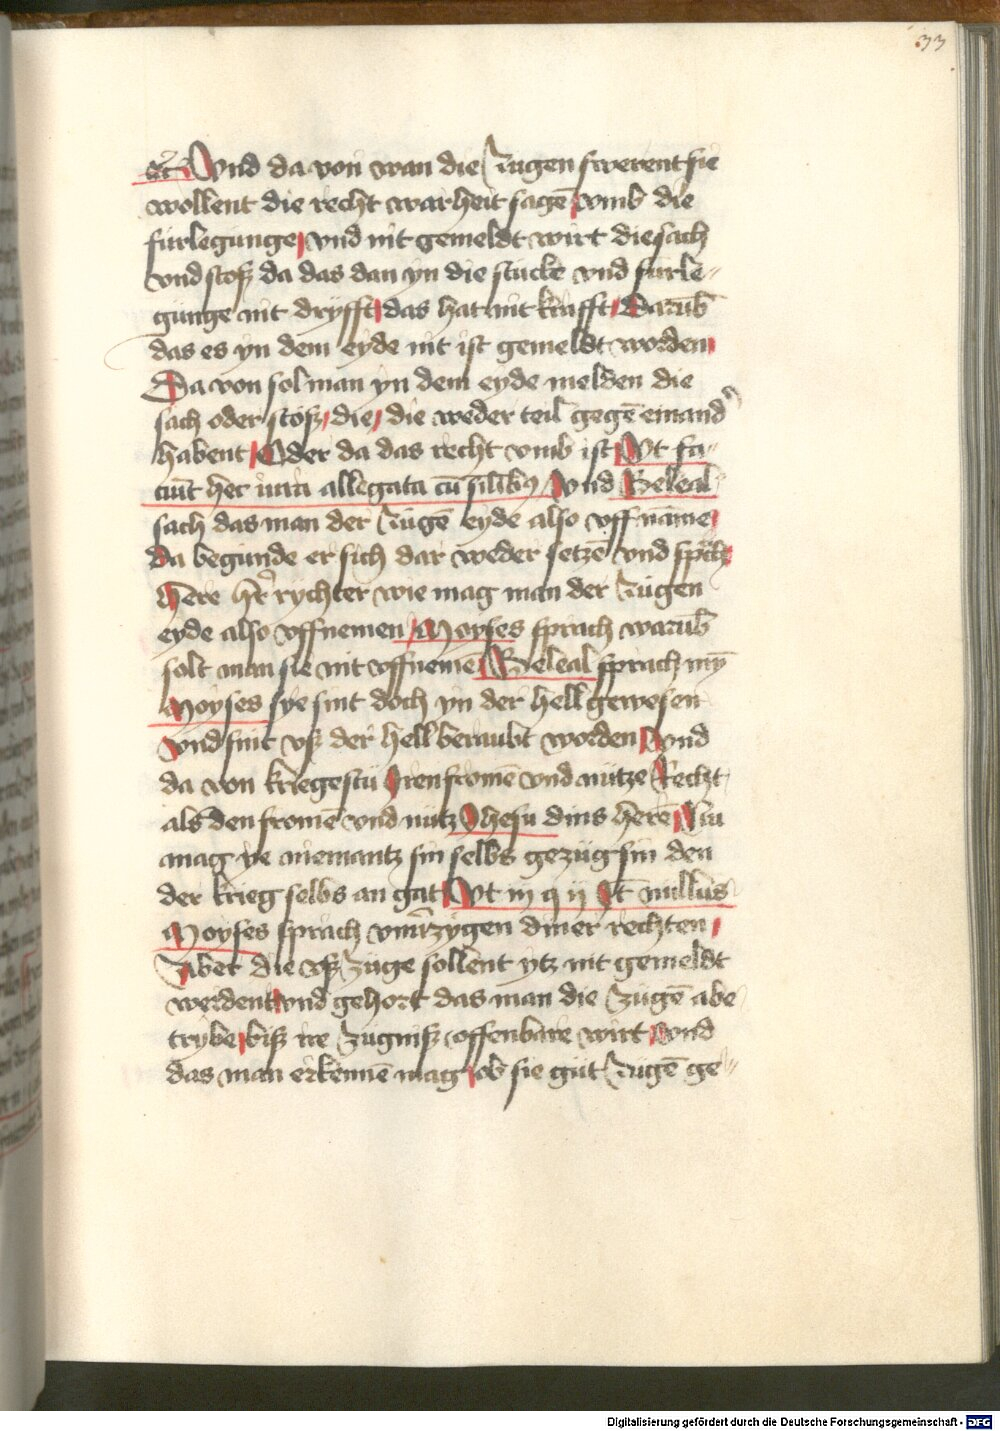 33
etc̃ Vnd da von wan die Zugen swerent sie
wollent die recht warheit sagē vmb die
furlegunge vnd nit gemeldt wirt die sach
vnd stoß da das dan yn die stucke vnd furle-
gunge nit dryfft das hat nit krafft Darūb
das es yn dem eyde nit ist gemeldt worden
Da von sol man yn dem eyde melden die
sach oder stoß die die weder teil gegē einand
habent Oder da das recht vmb ist Vt fa-
ciūt her allegata cū silibꝫ Vnd Beleal
sach das man der Zugē eyde also vff name
da begunde er sich dar weder setzē vnd sprach
Here hr̄ rychter wie mag man der Zugen
eyde also vffnemen Moyses sprach warūb
solt man sie nit vffnemē Beleal sprach mȳ
Moyses sye sint doch yn der hell gewesen
vnd sint vß der hell beraubt worden Vnd
da von kriegestu Iren fromē vnd nutze Recht
als den fromē vnd nutz Jhesu dins herē Nu
mag ye niemantz sin selbs gezug sin den
der krieg selbs an gat Vt iij q ij Itē nullus
Moyses sprach vnūrzygen diner rechten
Aber die vß Züge sollent ytz nit gemeldt
werdent vnd gehort das man die Zugē abe
trybe biß ire Zugniß offenbare wirt Vnd
das man erkennē mag ob sie gut Zugē ge-
Digitalisierung gefördert durch die Deutsche Forschungsgemeinschaft - DFG